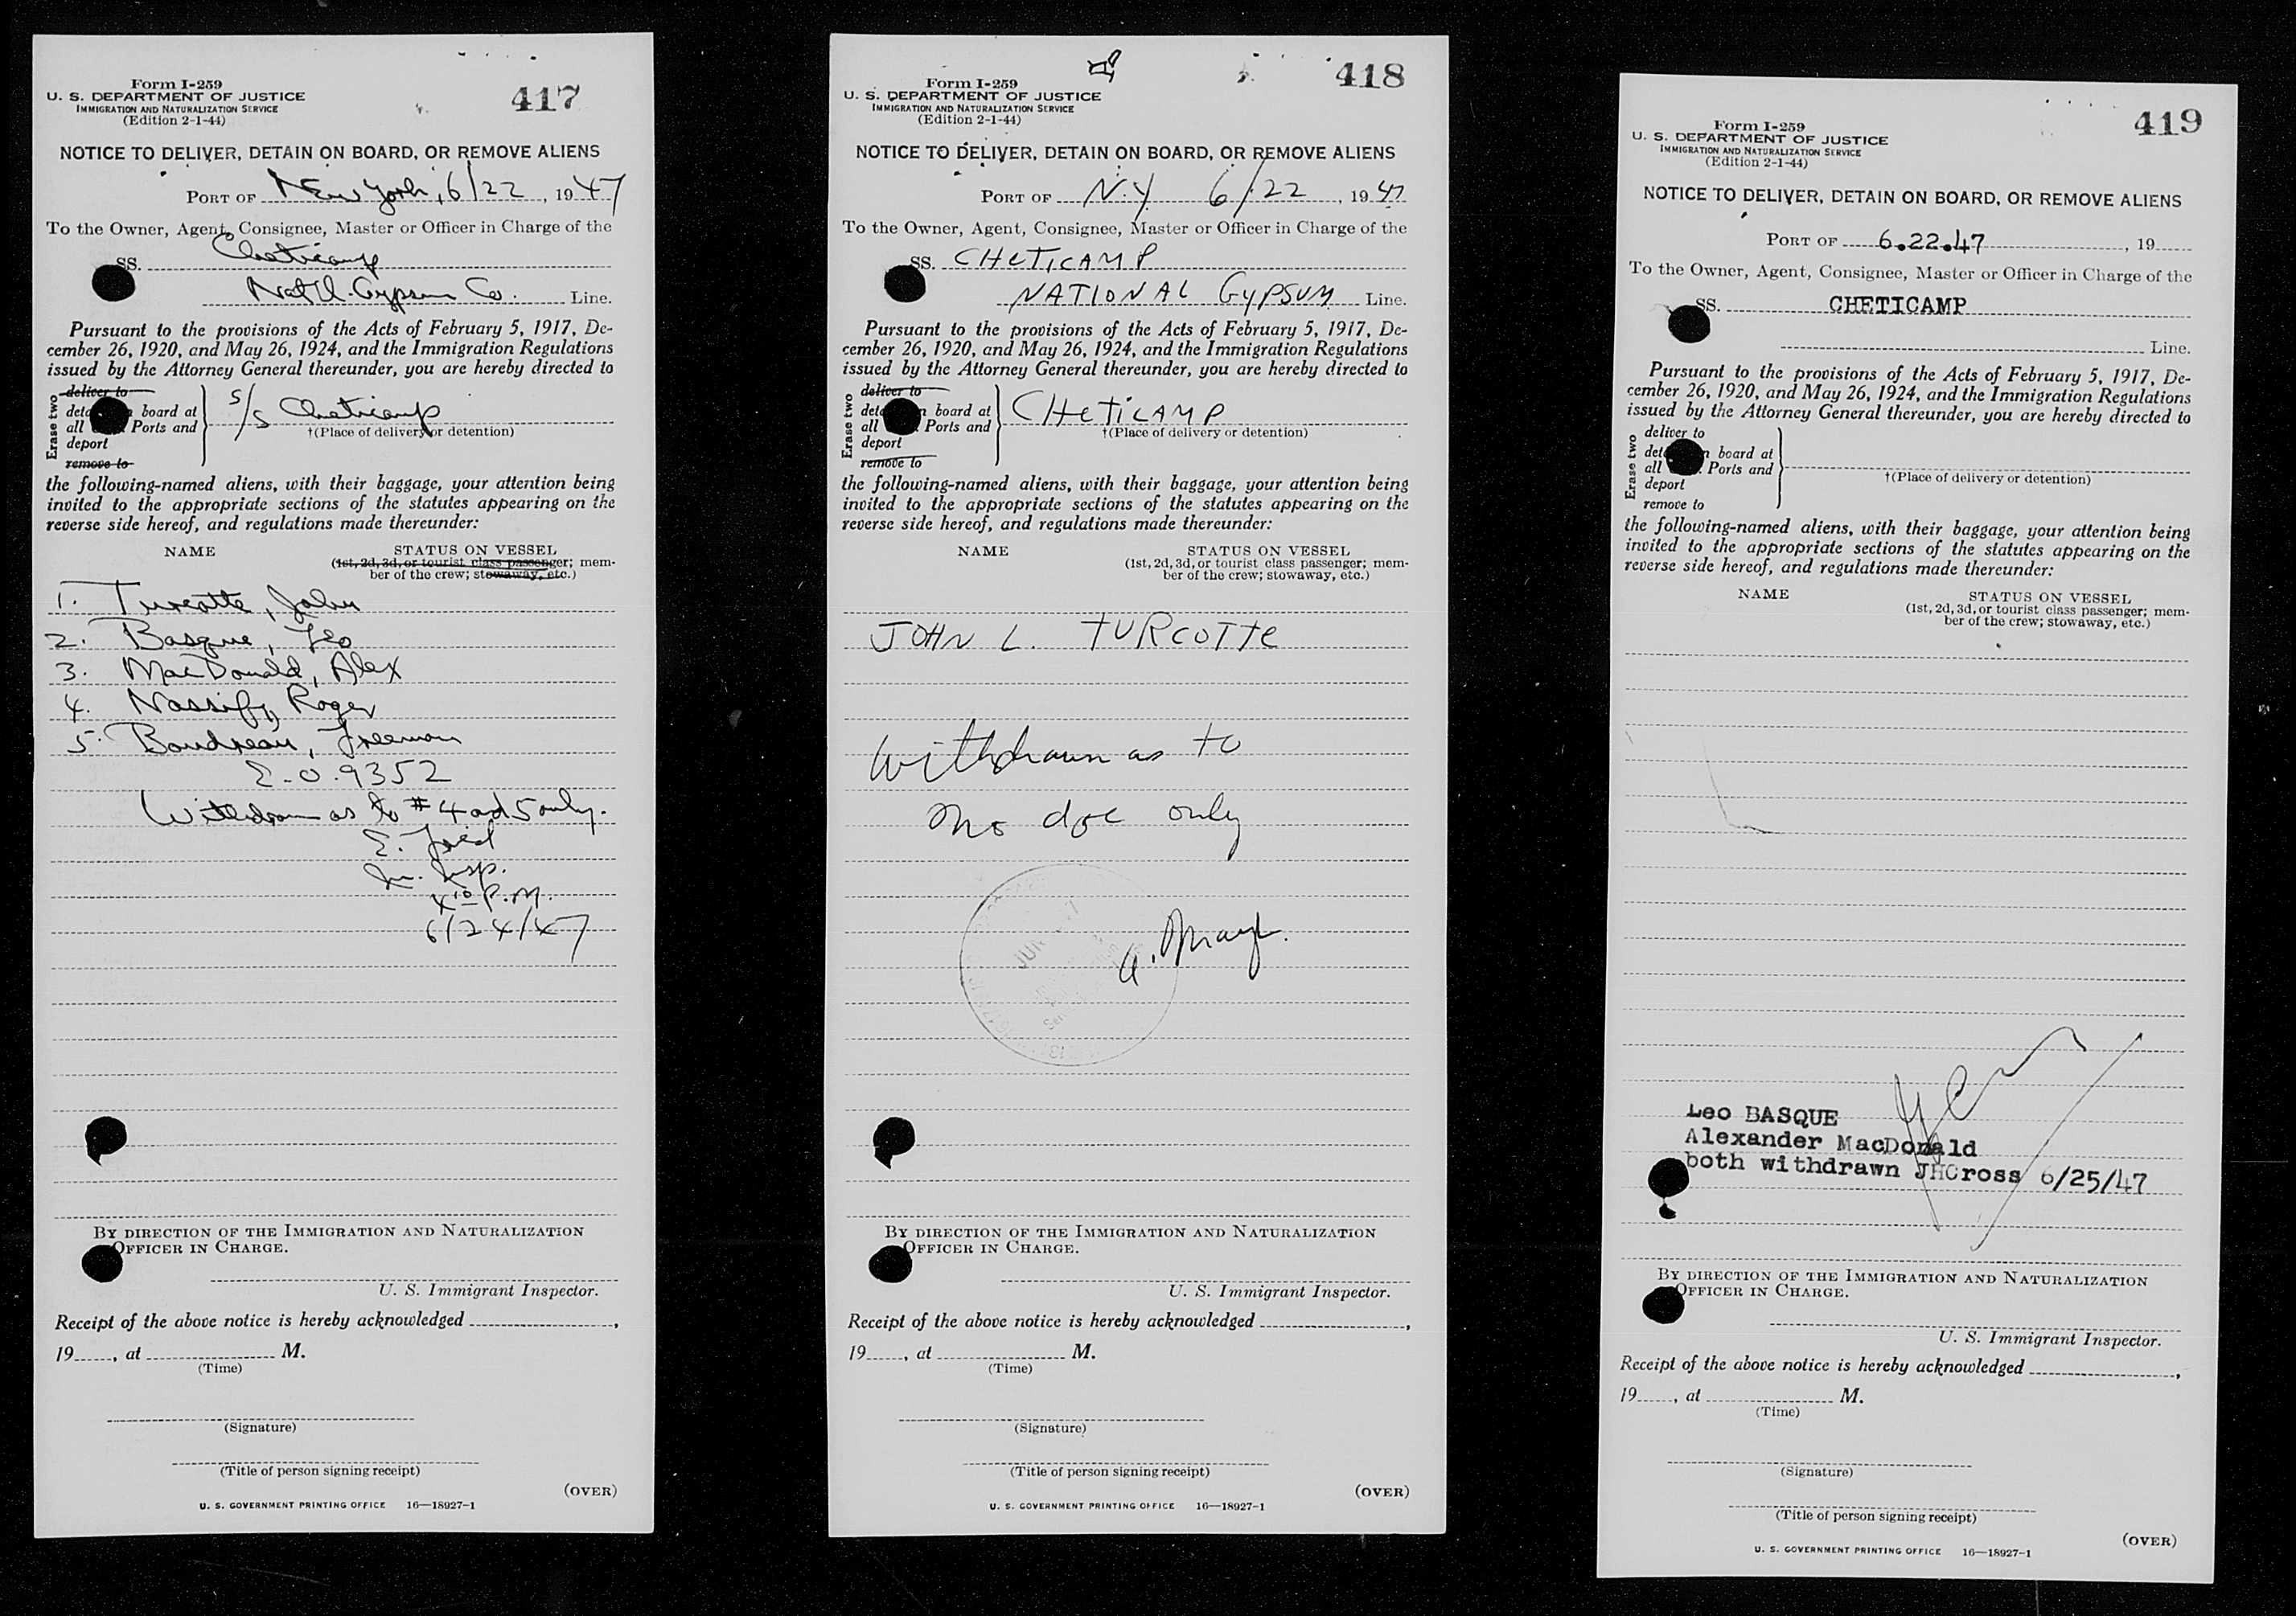 Form I-259
U. S. DEPARTMENT OF JUSTICE
IMMIGRATION AND NATURALIZATION SERVICE
(Edition 2-1-44)
417
NOTICE TO DELIVER, DETAIN ON BOARD, OR REMOVE ALIENS
PORT OF New York, 6/22, 1947
To the Owner, Agent, Consignee, Master or Officer in Charge of the
SS. Cheticamp
Nat'l. Gypsum Co. Line.
Pursuant to the provisions of the Acts of February 5, 1917, De-
cember 26, 1920, and May 26, 1924, and the Immigration Regulations
issued by the Attorney General thereunder, you are hereby directed to
Erase two
deliver to
board at
all Ports and
deport
remove to
S/S Cheticamp
†(Place of delivery or detention)
the following-named aliens, with their baggage, your attention being
invited to the appropriate sections of the statutes appearing on the
reverse side hereof, and regulations made thereunder:
NAME STATUS ON VESSEL
(1st, 2d, 3d, or tourist class passenger; mem-
ber of the crew; stowaway, etc.)
1. Turcotte, John
2. Basque, Leo
3. MacDonald, Alex
4. Nassify, Roger
5. Boudreau, Freeman
E.O. 9352
Withdrawn as to #4 and 5 only.
E.
Im. Insp.
4:10 P.M.
6/24/47
BY DIRECTION OF THE IMMIGRATION AND NATURALIZATION
OFFICER IN CHARGE.
U. S. Immigrant Inspector.
Receipt of the above notice is hereby acknowledged ,
19 , at M.
(Time)
(Signature)
(Title of person signing receipt)
(OVER)
U. S. GOVERNMENT PRINTING OFFICE 16—18927-1
Form I-259
U. S. DEPARTMENT OF JUSTICE
IMMIGRATION AND NATURALIZATION SERVICE
(Edition 2-1-44)
418
NOTICE TO DELIVER, DETAIN ON BOARD, OR REMOVE ALIENS
PORT OF N.Y. 6/22, 1947
To the Owner, Agent, Consignee, Master or Officer in Charge of the
SS. CHETICAMP
NATIONAL GYPSUM Line.
Pursuant to the provisions of the Acts of February 5, 1917, De-
cember 26, 1920, and May 26, 1924, and the Immigration Regulations
issued by the Attorney General thereunder, you are hereby directed to
Erase two
deliver to
board at
all Ports and
deport
remove to
CHETICAMP
†(Place of delivery or detention)
the following-named aliens, with their baggage, your attention being
invited to the appropriate sections of the statutes appearing on the
reverse side hereof, and regulations made thereunder:
NAME STATUS ON VESSEL
(1st, 2d, 3d, or tourist class passenger; mem-
ber of the crew; stowaway, etc.)
JOHN L. TURCOTTE
Withdrawn as to
no doc only
JUN
A.
BY DIRECTION OF THE IMMIGRATION AND NATURALIZATION
OFFICER IN CHARGE.
U. S. Immigrant Inspector.
Receipt of the above notice is hereby acknowledged ,
19 , at M.
(Time)
(Signature)
(Title of person signing receipt)
(OVER)
U. S. GOVERNMENT PRINTING OFFICE 16—18927-1
Form I-259
U. S. DEPARTMENT OF JUSTICE
IMMIGRATION AND NATURALIZATION SERVICE
(Edition 2-1-44)
419
NOTICE TO DELIVER, DETAIN ON BOARD, OR REMOVE ALIENS
PORT OF 6.22.47, 19
To the Owner, Agent, Consignee, Master or Officer in Charge of the
SS. CHETICAMP
Line.
Pursuant to the provisions of the Acts of February 5, 1917, De-
cember 26, 1920, and May 26, 1924, and the Immigration Regulations
issued by the Attorney General thereunder, you are hereby directed to
Erase two
deliver to
board at
all Ports and
deport
remove to
†(Place of delivery or detention)
the following-named aliens, with their baggage, your attention being
invited to the appropriate sections of the statutes appearing on the
reverse side hereof, and regulations made thereunder:
NAME STATUS ON VESSEL
(1st, 2d, 3d, or tourist class passenger; mem-
ber of the crew; stowaway, etc.)
Leo BASQUE
Alexander MacDonald
both withdrawn JHCross 6/25/47
BY DIRECTION OF THE IMMIGRATION AND NATURALIZATION
OFFICER IN CHARGE.
U. S. Immigrant Inspector.
Receipt of the above notice is hereby acknowledged ,
19 , at M.
(Time)
(Signature)
(Title of person signing receipt)
(OVER)
U. S. GOVERNMENT PRINTING OFFICE 16—18927-1